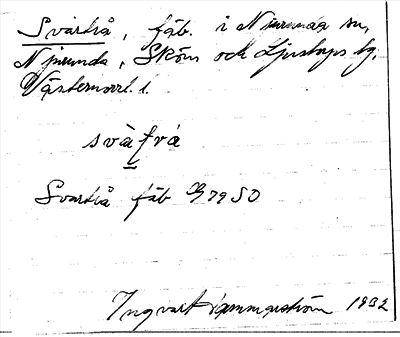 Svartvå, fäb. i Njurunda sn,
Njurunda, Sköns och Ljustorps tg,
Västernorrl. l.
svàt̲vá
Svartvå fäb G 79 SO
Ingvart Hammarström 1932